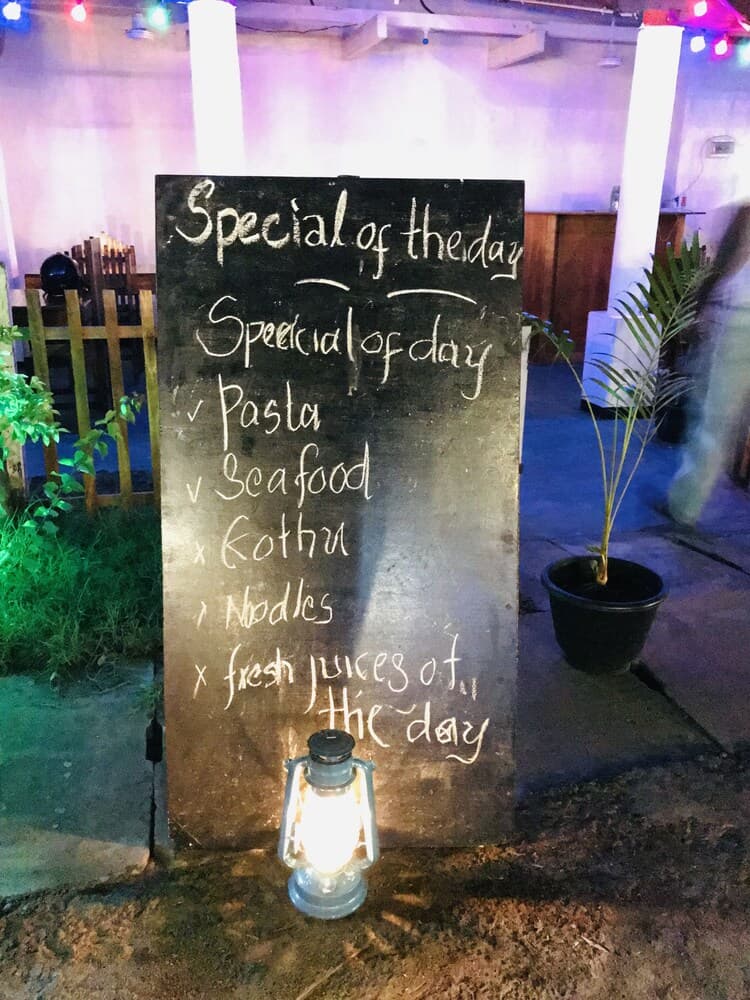 Special of the day
Speecial of day
✓ Pasta
✓ Seafood
x Kothu
› Noodles
x fresh juices of
the day